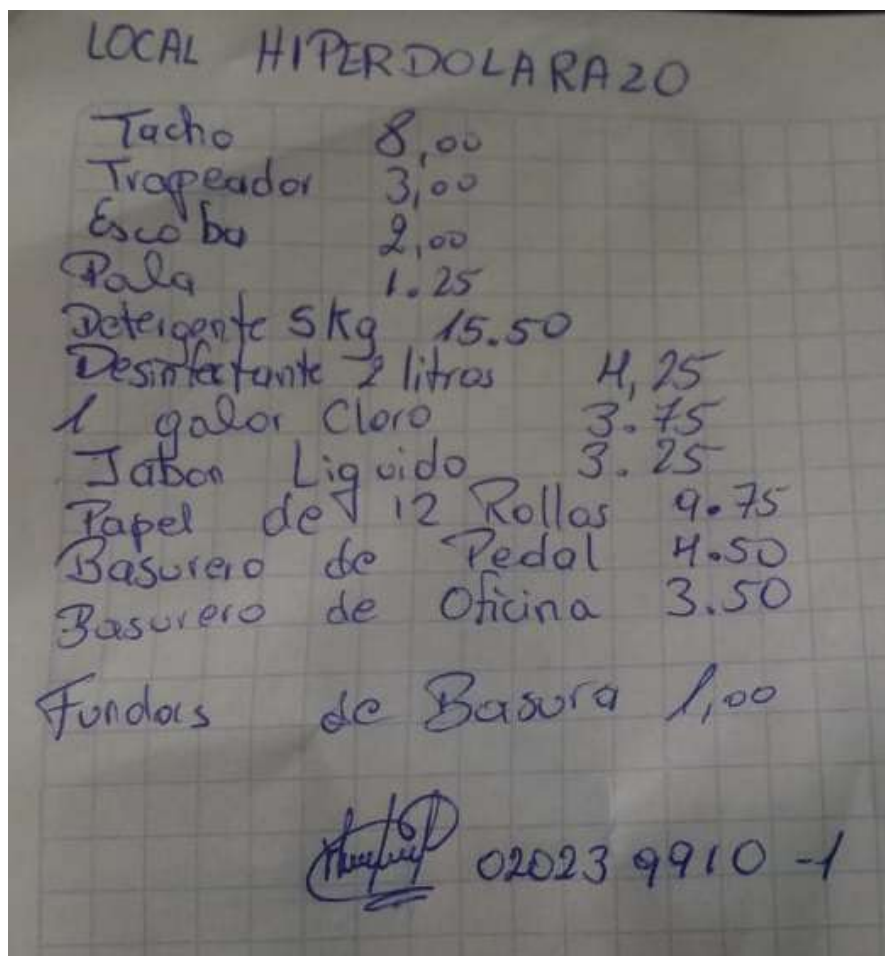 LOCAL HIPERDOLARAZO
Tacho 8,00
Trapeador 3,00
Escoba 2,00
Pala 1.25
Detergente 5kg 15.50
Desinfectante 2 litros 4,25
1 galor Cloro 3.75
Jabon Liquido 3.25
Papel de 12 Rollos 9.75
Basurero de Pedal 4.50
Basurero de Oficina 3.50
Fundas de Basura 1,00
020239910-1